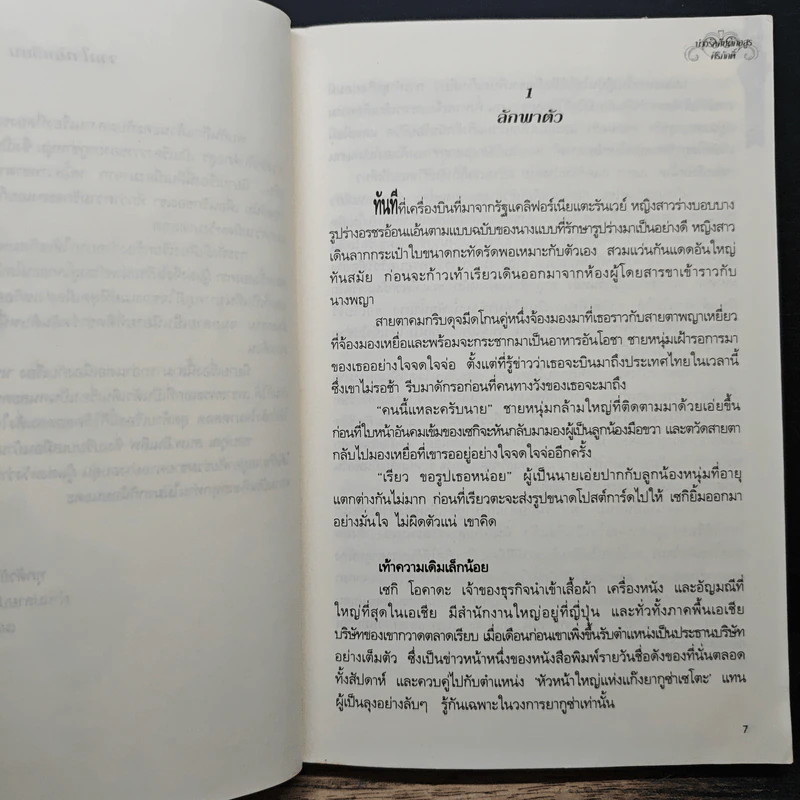 ศิริภักดิ์
1
ลักพาตัว
ทันทีที่เครื่องบินที่มาจากรัฐแคลิฟอร์เนียแตะรันเวย์ หญิงสาวร่างบอบบาง
รูปร่างอรชรอ้อนแอ้นตามแบบฉบับของนางแบบที่รักษารูปร่างมาเป็นอย่างดี หญิงสาว
เดินลากกระเป๋าใบขนาดกะทัดรัดพอเหมาะกับตัวเอง สวมแว่นกันแดดอันใหญ่
ทันสมัย ก่อนจะก้าวเท้าเรียวเดินออกมาจากห้องผู้โดยสารขาเข้าราวกับ
นางพญา
สายตาคมกริบดุจมีดโกนคู่หนึ่งจ้องมองมาที่เธอราวกับสายตาพญาเหยี่ยว
ที่จ้องมองเหยื่อและพร้อมจะกระชากมาเป็นอาหารอันโอชา ชายหนุ่มเฝ้ารอการมา
ของเธออย่างใจจดใจจ่อ ตั้งแต่ที่รู้ข่าวว่าเธอจะบินมาถึงประเทศไทยในเวลานี้
ซึ่งเขาไม่รอช้า รีบมาดักรอก่อนที่คนทางวังของเธอจะมาถึง
“คนนี้แหละครับนาย” ชายหนุ่มกล้ามใหญ่ที่ติดตามมาด้วยเอ่ยขึ้น
ก่อนที่ใบหน้าอันคมเข้มของเซกิจะหันกลับมามองผู้เป็นลูกน้องมือขวา และตวัดสายตา
กลับไปมองเหยื่อที่เขารออยู่อย่างใจจดใจจ่ออีกครั้ง
“เรียว ขอรูปเธอหน่อย” ผู้เป็นนายเอ่ยปากกับลูกน้องหนุ่มที่อายุ
แตกต่างกันไม่มาก ก่อนที่เรียวตะจะส่งรูปขนาดโปสต์การ์ดไปให้ เซกิยิ้มออกมา
อย่างมั่นใจ ไม่ผิดตัวแน่ เขาคิด
เท้าความเดิมเล็กน้อย
เซกิ โอคาดะ เจ้าของธุรกิจนำเข้าเสื้อผ้า เครื่องหนัง และอัญมณีที่
ใหญ่ที่สุดในเอเชีย มีสำนักงานใหญ่อยู่ที่ญี่ปุ่น และทั่วทั้งภาคพื้นเอเชีย
บริษัทของเขากวาดตลาดเรียบ เมื่อเดือนก่อนเขาเพิ่งขึ้นรับตำแหน่งเป็นประธานบริษัท
อย่างเต็มตัว ซึ่งเป็นข่าวหน้าหนึ่งของหนังสือพิมพ์รายวันชื่อดังของที่นั่นตลอด
ทั้งสัปดาห์ และควบคู่ไปกับตำแหน่ง ‘หัวหน้าใหญ่แห่งแก๊งยากูซ่าเซโตะ’ แทน
ผู้เป็นลุงอย่างลับๆ รู้กันเฉพาะในวงการยากูซ่าเท่านั้น
7